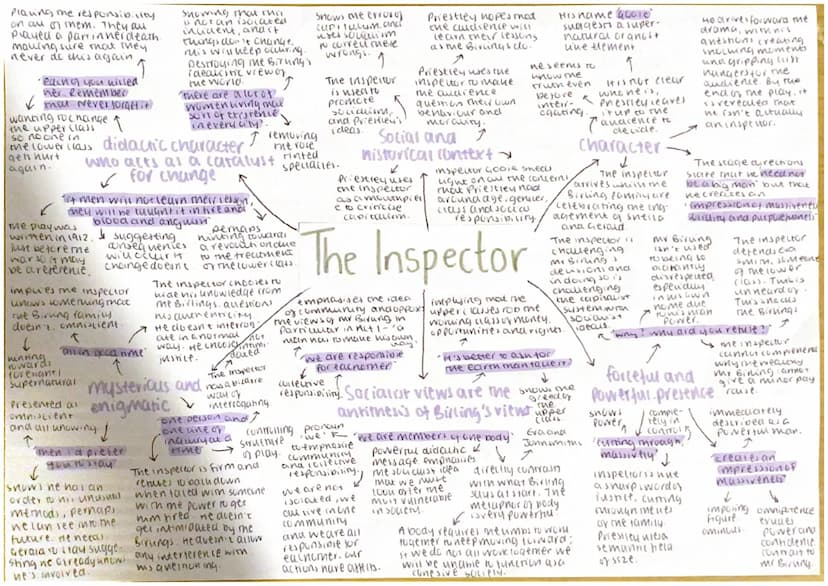 placing the responsibility
on all of them. They all
played a part in her death
making sure that they
never do this again
"each of you killed
her. Remember
that. Never forget it"
wanting to change
the upper class
so no one in
the lower class
gets hurt
again.
didactic character
who acts as a catalyst
for change
showing that this
is not an isolated
incident, and if
things don't change,
this will keep occuring.
Destroying the Birling's
idealistic view of
the world
there are a lot of
women living that
sort of existence
in every city?
removing
the rose
tinted
spectacles.
"if men will not learn their lesson,
they will be taught it in fire and
blood and anguish"
the play was
written in 1912,
just before the
war so it may
be a reference.
suggesting
consequences
will occur if
change doesn't
perhaps
hinting towards
a revolution due
to the treatment
of the lower class.
shows the error of
capitalism and
uses socialism
to correct these
wrongs.
The Inspector
is used to
promote
socialism,
and Priestley's
ideas.
Priestley hopes that
the audience will
learn their lessons
as the Birlings do.
Priestley uses the
inspector to make
the audience
question their own
behaviour and
morality.
Social and
historical context
Priestley uses
the Inspector
as a mouthpiece
to criticise
capitalism.
Inspector Goole sheds
light on all the concerns
that Priestley had
around age, gender,
class and social
responsibility.
His name 'Goole'
suggests a super-
natural or ghost
like element
he seems to
know the
truth even
before
inter-
rogating.
It is not clear
who he is,
Priestley leaves
it up to the
audience to
decide.
He drives forward the
drama, with his
questions creating
shocking moments
and gripping cliff
hangers for the
audience. By the
end of the play, it
is revealed that
he isn't actually
an inspector.
character
The inspector
arrives whilst the
Birling family are
celebrating the eng-
agement of Sheila
and Gerald
The stage directions
state that he "need not
be a big man" but that
he creates an
"impression of massiveness,
solidity and purposefulness"
The Inspector
The inspector is
challenging
Mr Birling's
decisions and
in doing so is
challenging
the capitalist
system with
socialist
ideas.
Mr Birling
isn't used
to being so
blatantly
disrespected
especially
in his own
home due
to his man
power.
The inspector
defends Eva
Smith, someone
of the lower
class. This is
unheard of.
This shocks
the Birlings
"Why? Why did you refuse?"
the inspector
cannot comprehend
why the wealthy
Mr Birling cannot
give a minor pay
raise.
forceful and
powerful presence
shows
power
comple-
tely in
control
"cutting through,
massively"
inspector is like
a sharp sword of
justice, cutting
through the lies
of the family.
Priestley uses a
semantic field
of size.
immediately
described as a
powerful man.
"create an
impression of
massiveness"
imposing
figure
ominous
omnipotence
exudes
power and
confidence
contrast to
Mr Birling.
implies the Inspector
knows something that
the Birling family
doesn't. omniscient
"all in good time"
hinting
towards
foresight /
supernatural
mysterious and
enigmatic
Presented as
omniscient
and all knowing.
shows he has an
order to his unusual
methods, perhaps
he can see into the
future. He needs
Gerald to stay sugge-
sting he already knows
he's involved.
The inspector chooses to
hide his knowledge from
the Birlings. questions
his authenticity
He doesn't interrogate
in a normal
way. He chooses
justice.
The inspector
has a bizarre
way of
interrogating
"one person and
one line of
inquiry at a
time"
controlling
structure
of play.
The inspector is firm and
refuses to back down
when faced with someone
with the power to get
him fired. He doesn't
get intimidated by the
Birlings. He doesn't allow
any interference with
his questioning.
emphasises the idea
of community and opposes
the views of Mr Birling in
particular in Act 1 - 'a
man has to make his own
way'
"we are responsible
for each other"
collective
responsibility.
implying that the
upper classes rob the
working class of money,
opportunities and rights.
"it's better to ask for
the earth than to take it"
shows the
greed of the
upper class
Socialist views are the
antithesis of Birling's views
"we are members of one body"
pronoun
'we' is
to emphasise
community
and collective
responsibility.
we are not
isolated, we
all live in one
community
and we are all
responsible for
each other, our
actions have affects.
powerful didactic
message emphasises
the socialist idea
that we must
look after the
most vulnerable
in society.
directly contrasts
with what Birling
says at start. The
metaphor of body
is very powerful
A body requires the limbs to work
together to keep moving forward;
if we do not all work together we
will be unable to function as a
cohesive society.